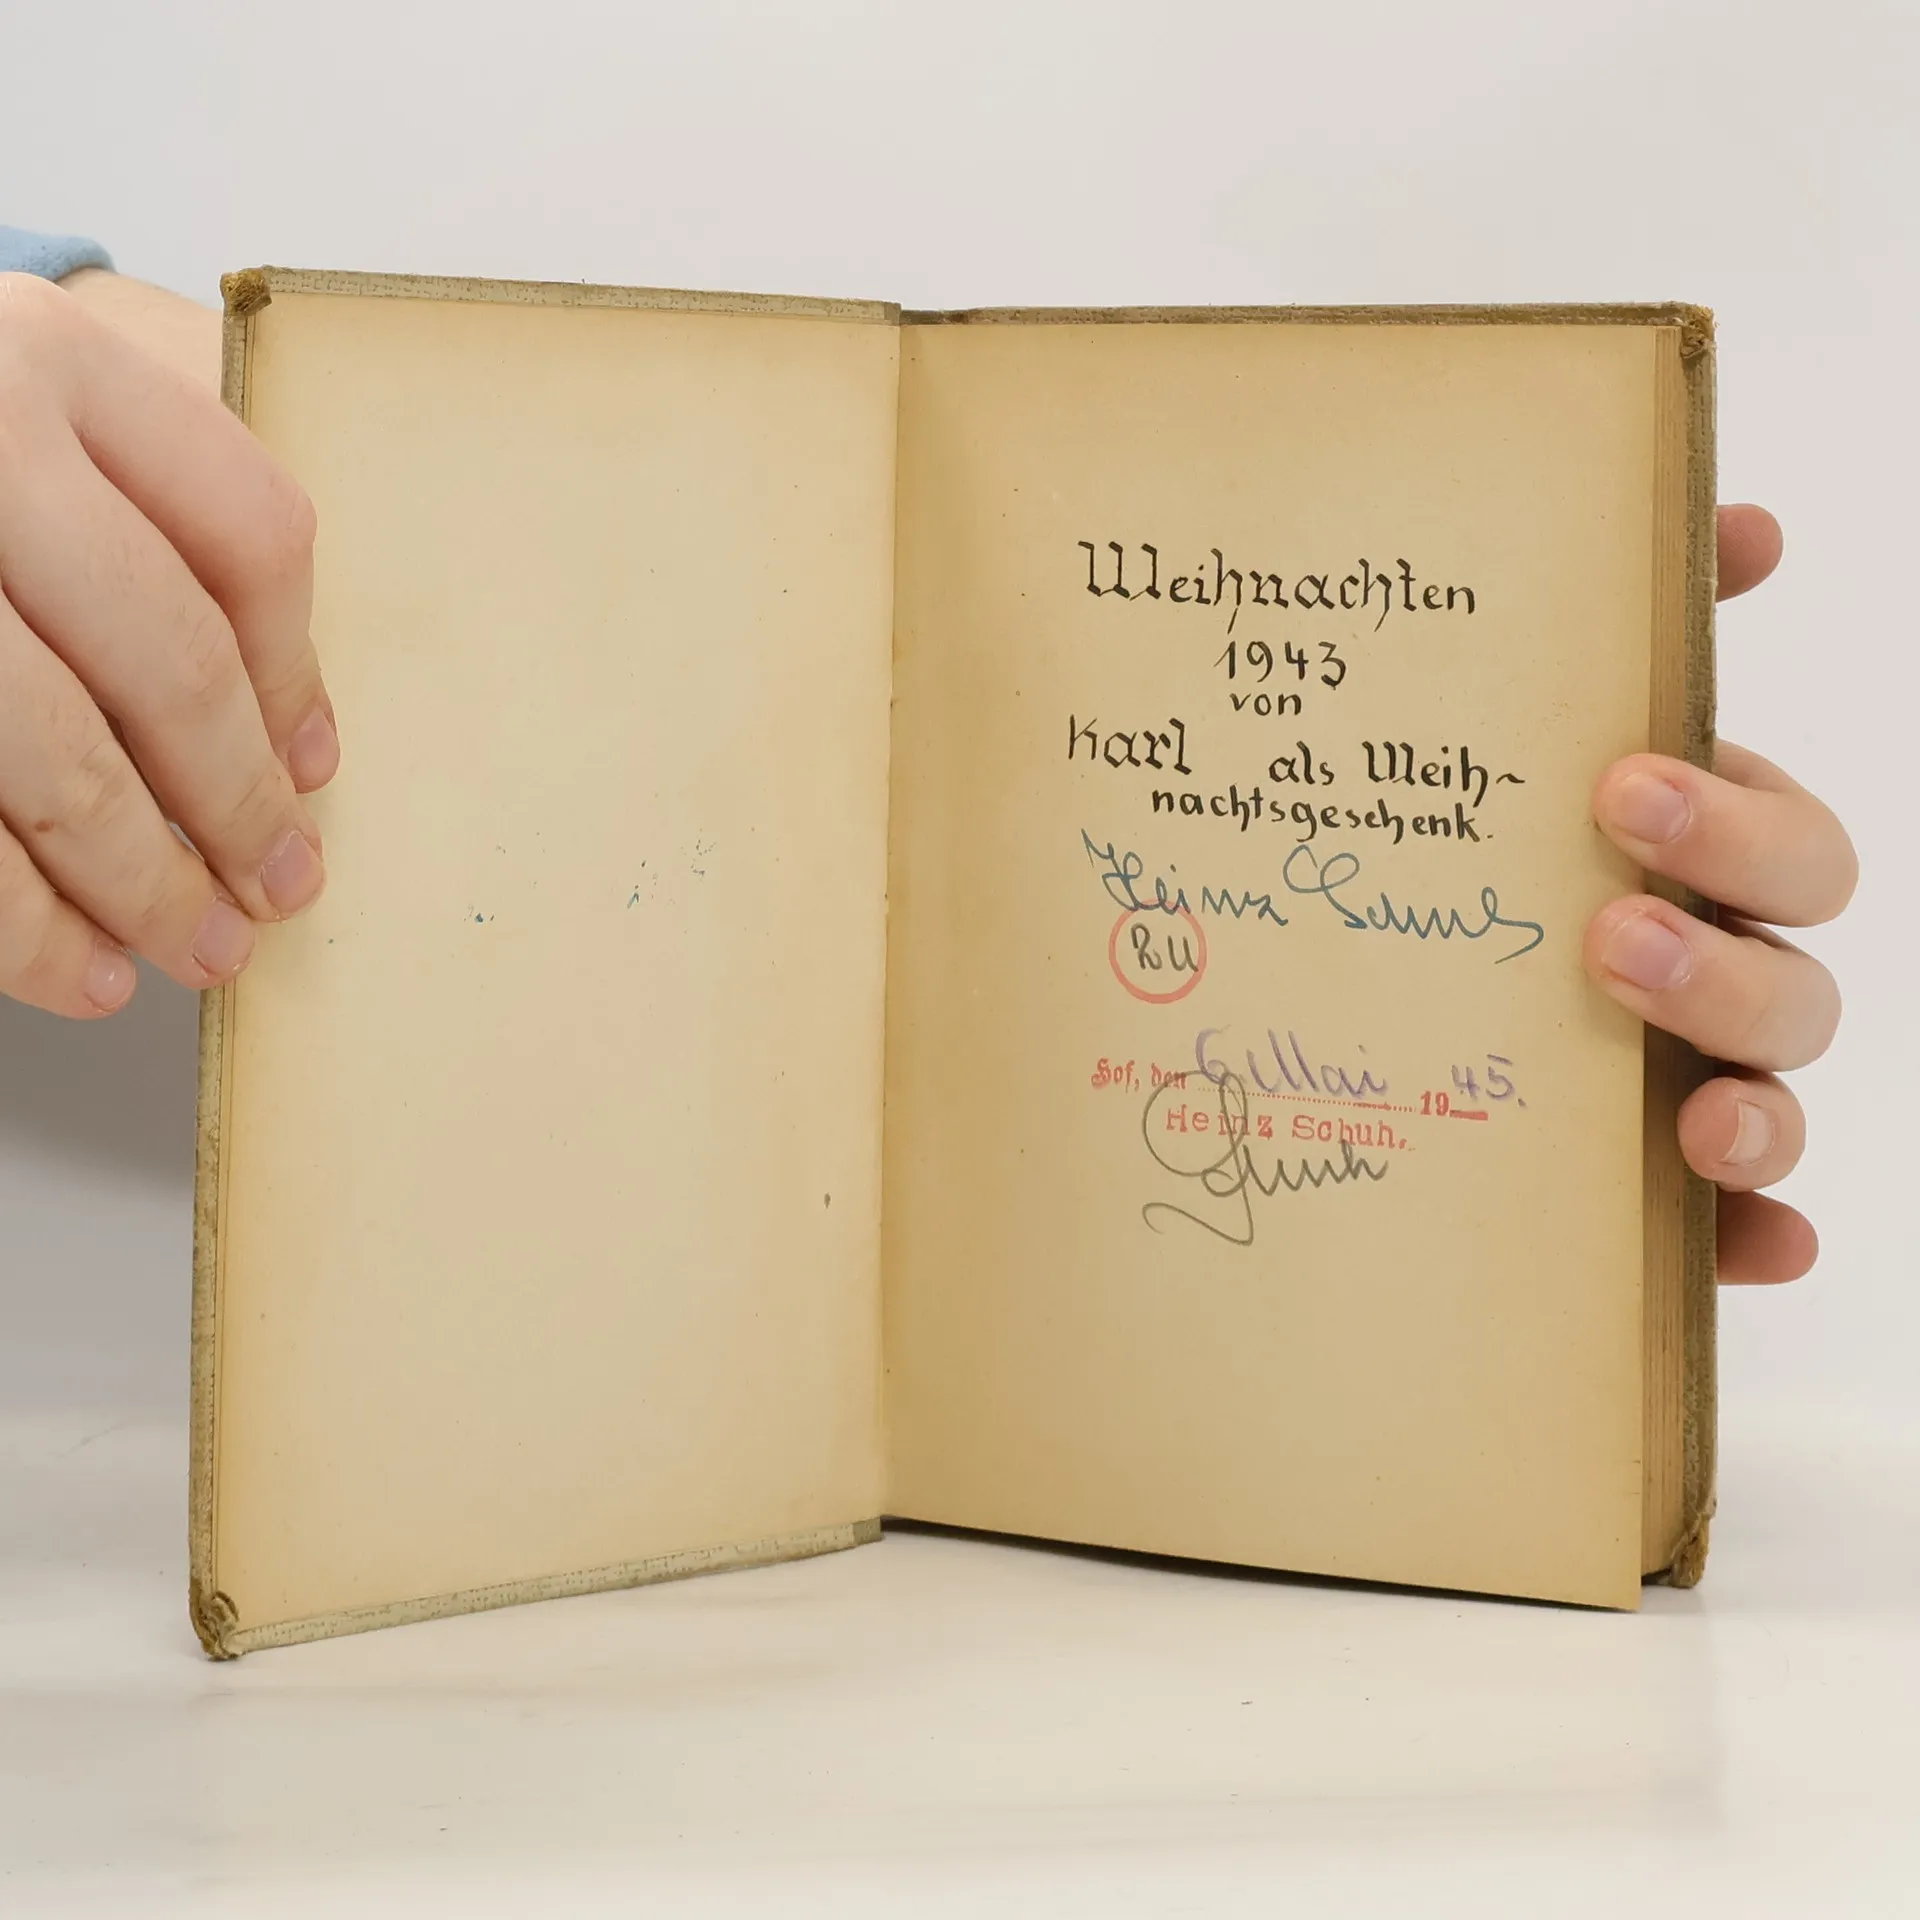 Weihnachten
1943
von
Karl als Weih~
nachtsgeschenk.
Heinz Schuh
Hof, den 6. Mai 1945.
Heinz Schuh.
Schuh